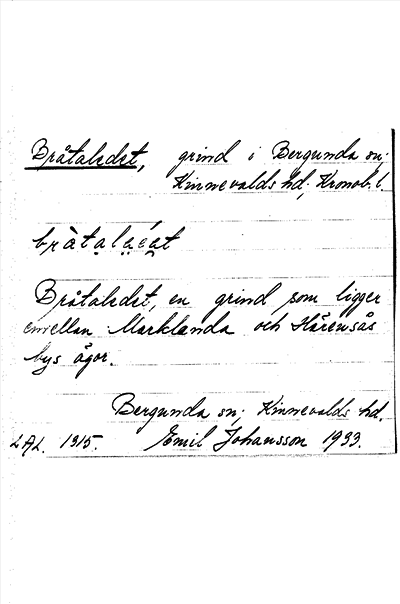 Bråtaledet, grind i Bergunda sn;
Kinnevalds hd; Kronob. l.
Bråtaledet, en grind som ligger
emellan Marklanda och Härensås
bys ägor.
Bergunda sn; Kinnevalds hd.
LAL. 1315. Emil Johansson 1933.